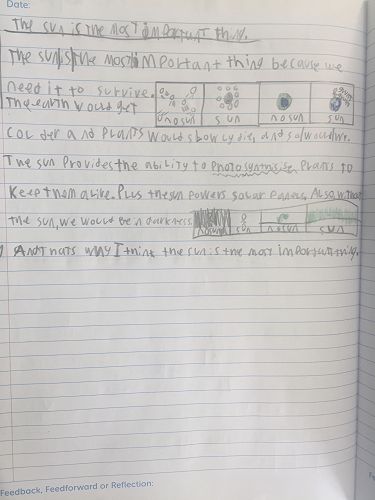 Date:
The sun is the most important thing.
The sun is the most important thing because we
need it to survive.
The earth would get
no sun sun no sun sun
colder and plants would slowly die, and so would we.
The sun provides the ability to photosynthisise plants to
keep them alive. Plus the sun powers solar panels. Also, without
the sun, we would be in darkness.
no sun sun no sun sun
And thats why I think the sun is the most important thing.
Feedback, Feedforward or Reflection: